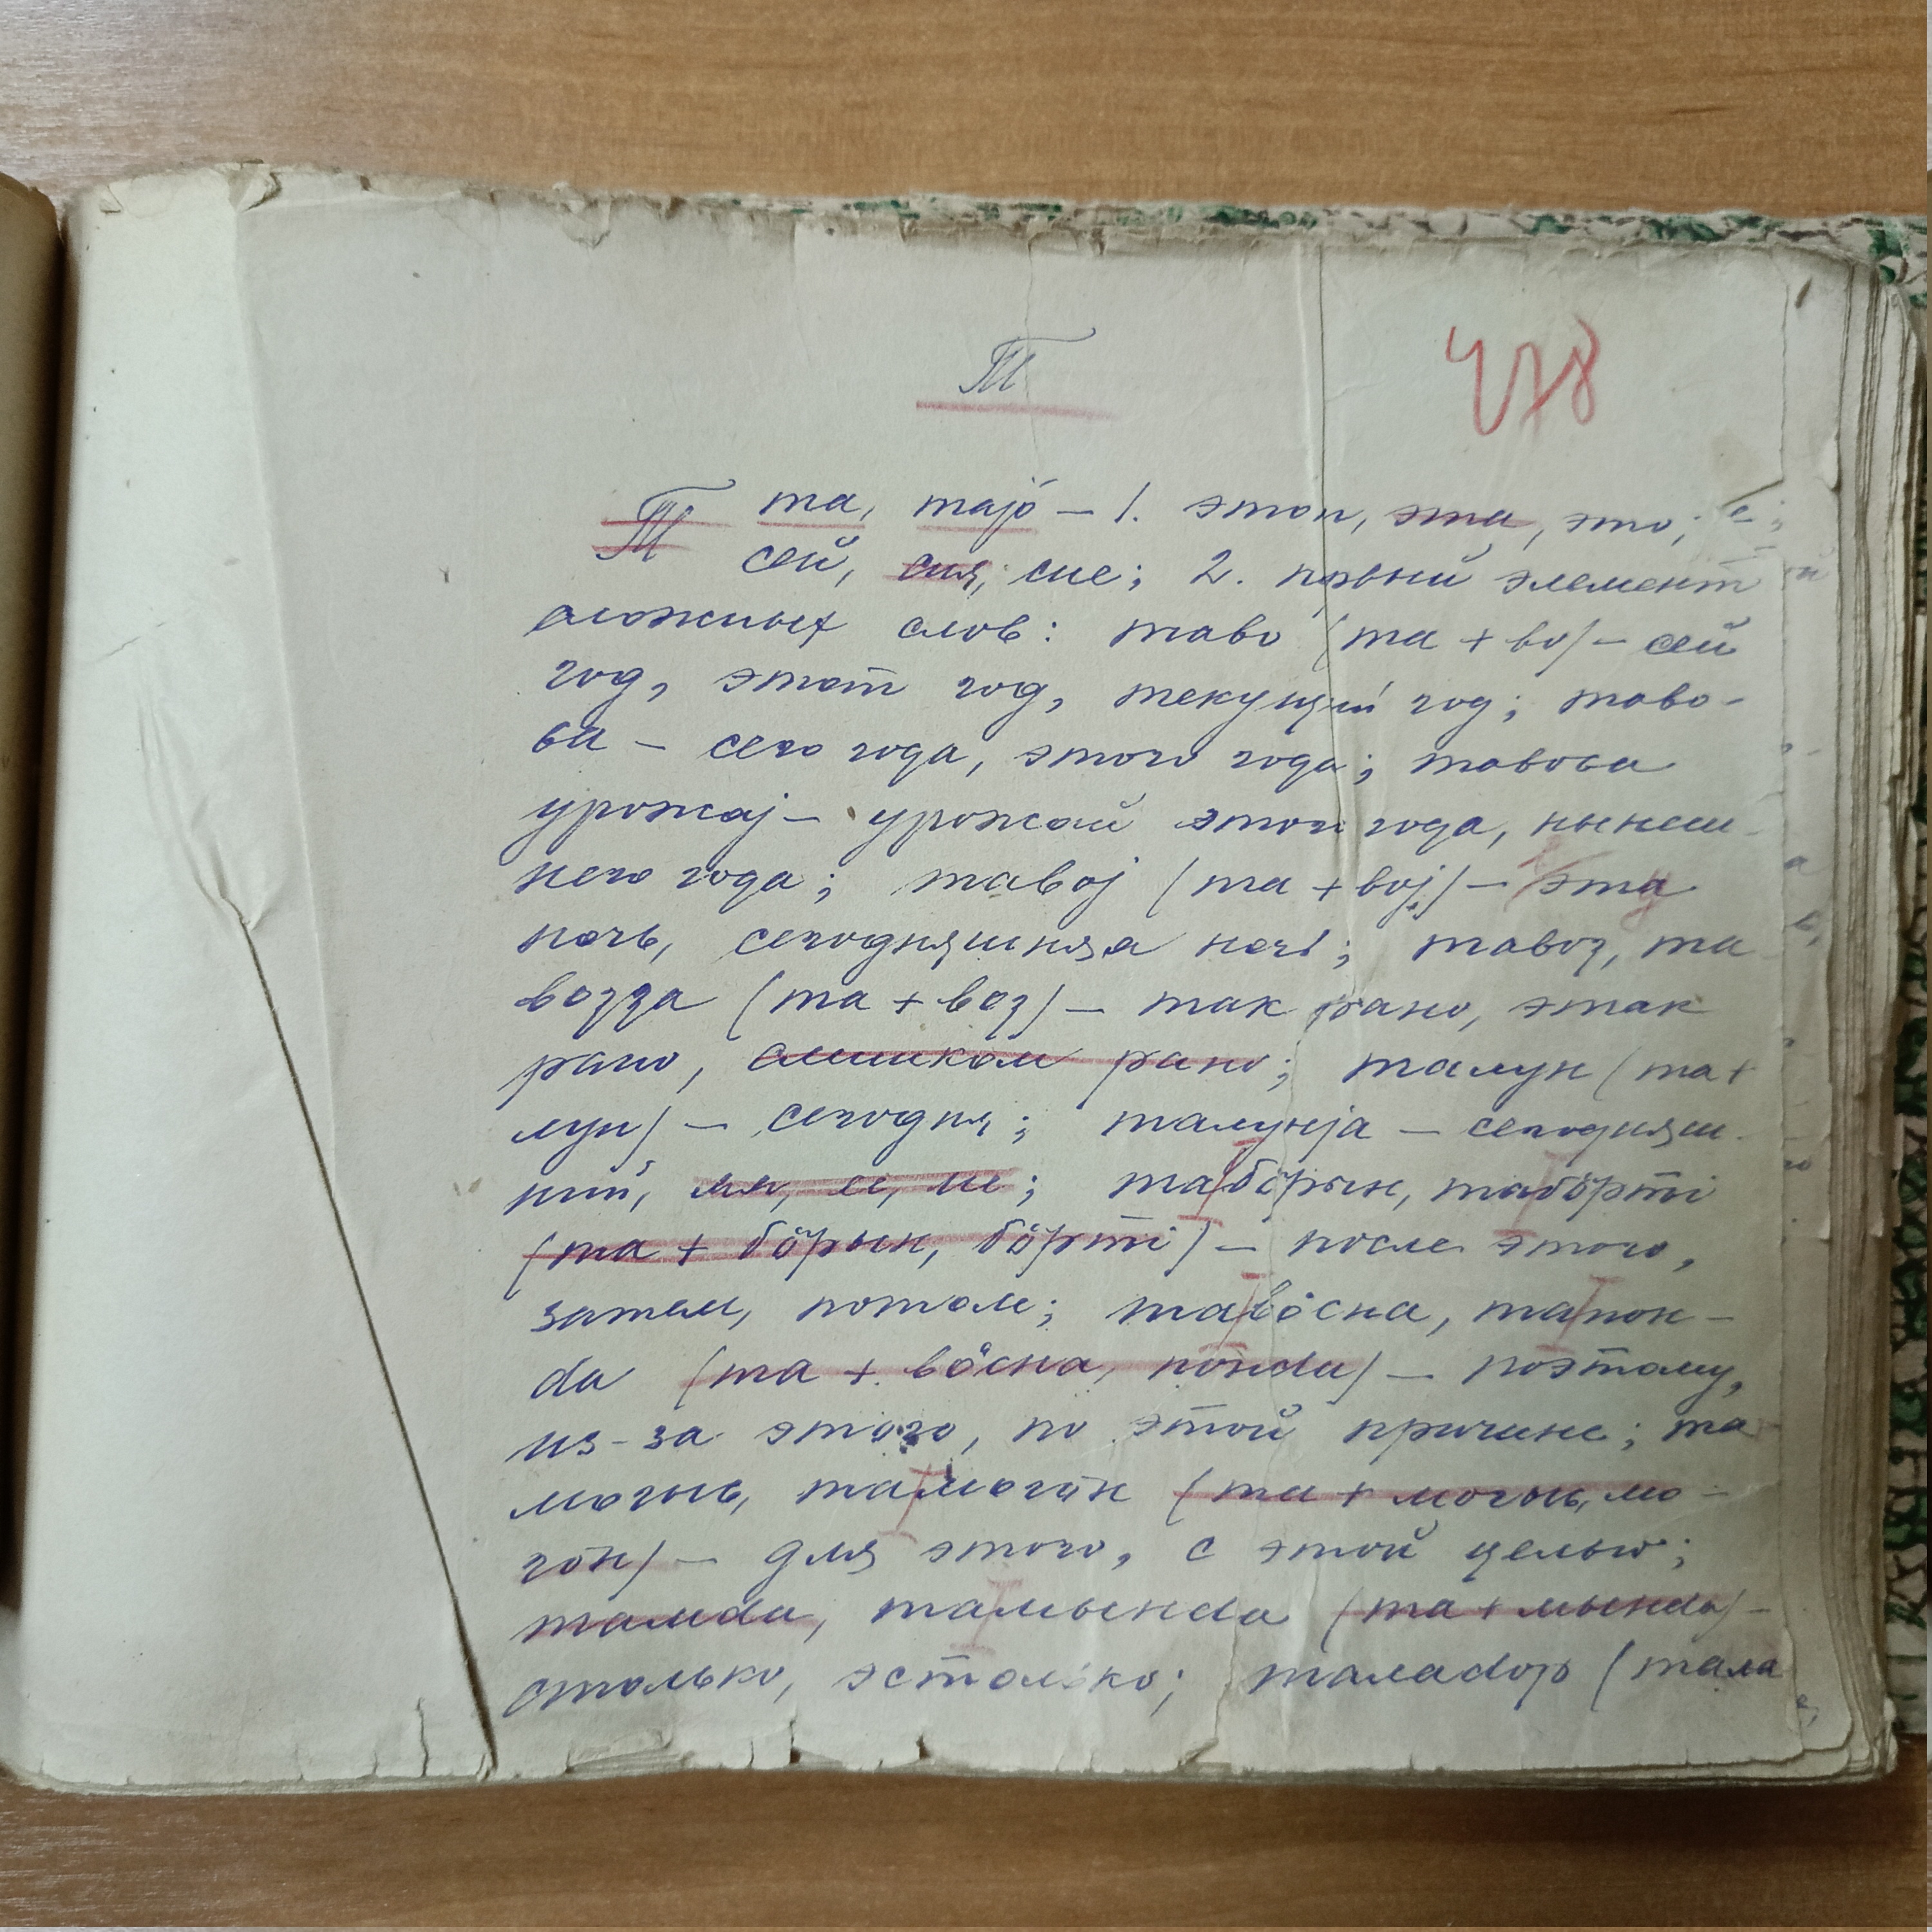 Т
478
Т та, тајӧ – 1. этот, эта, это;
сей, сия, сие; 2. первый элемент
сложных слов: таво (та + во) – сей
год, этот год, текущий год; таво-
ва – сего года, этого года; тавоса
урожај – урожай этого года, нынеш-
него года; тавој (та + вој) – эта
ночь, сегодняшняя ночь; тавоз, та
возза (та + воз) – так рано, этак
рано, слишком рано; талун (та +
лун) – сегодня; талунја – сегодняш-
ний, яя, ее, ие; табӧрын, табӧрті
(та + бӧрын, бӧрті) – после этого,
затем, потом; тавӧсна, тапон-
dа (та + вӧсна, понdа) – поэтому,
из-за этого, по этой причине; та
могыс, тамогӧн (та + могыс, мо-
гӧн) – для этого, с этой целью;
тамdа, тамынdа (та + мынdа) –
столько, эстолько; талаdор (тала